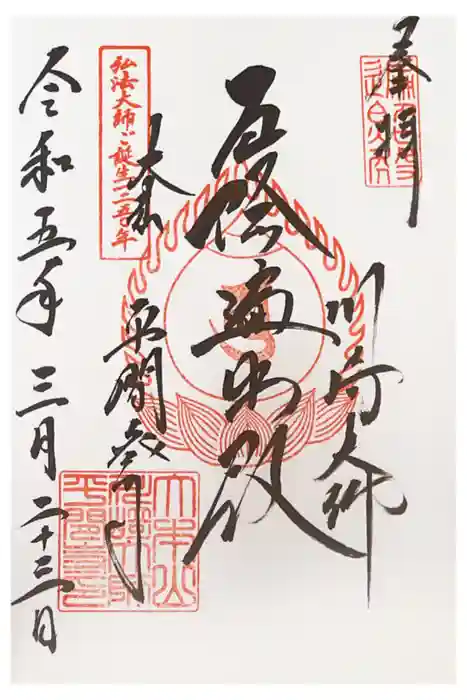 奉拝
川崎大師
厄除遍照殿
弘法大師ご誕生一二五〇年
大本山
平間寺
令和五年三月二十三日